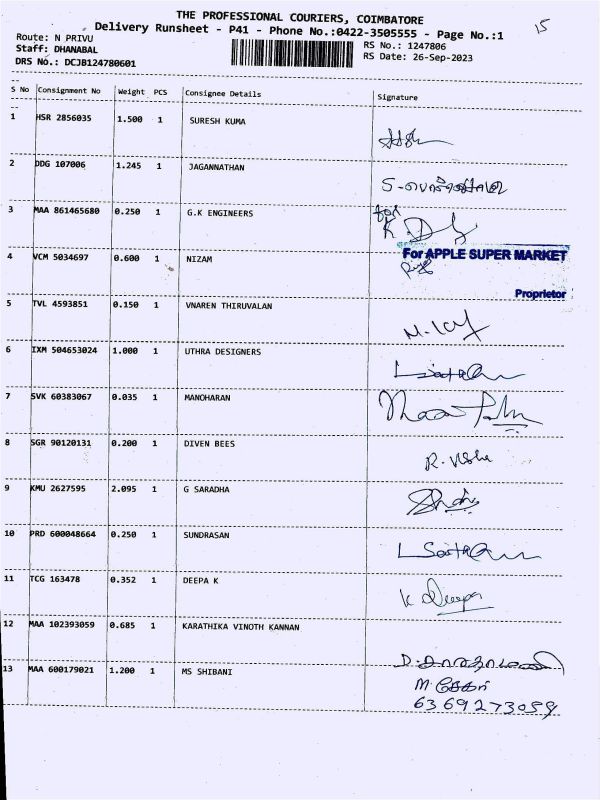 THE PROFESSIONAL COURIERS, COIMBATORE
15
Delivery Runsheet - P41 - Phone No.:0422-3505555 - Page No.:1
Route: N PRIVU
RS No.: 1247806
Staff: DHANABAL
RS Date: 26-Sep-2023
DRS No.: DCJB124780601
S No Consignment No Weight PCS Consignee Details Signature
1 HSR 2856035 1.500 1 SURESH KUMA
2 DDG 107006 1.245 1 JAGANNATHAN
3 MAA 861465680 0.250 1 G.K ENGINEERS
for
For APPLE SUPER MARKET
4 VCM 5034697 0.600 1 NIZAM
Proprietor
5 TVL 4593851 0.150 1 VNAREN THIRUVALAN
6 IXM 504653024 1.000 1 UTHRA DESIGNERS
7 SVK 60383067 0.035 1 MANOHARAN
8 SGR 90120131 0.200 1 DIVEN BEES
9 KMU 2627595 2.095 1 G SARADHA
10 PRD 600048664 0.250 1 SUNDRASAN
11 TCG 163478 0.352 1 DEEPA K
K Deepa
12 MAA 102393059 0.685 1 KARATHIKA VINOTH KANNAN
13 MAA 600179021 1.200 1 MS SHIBANI